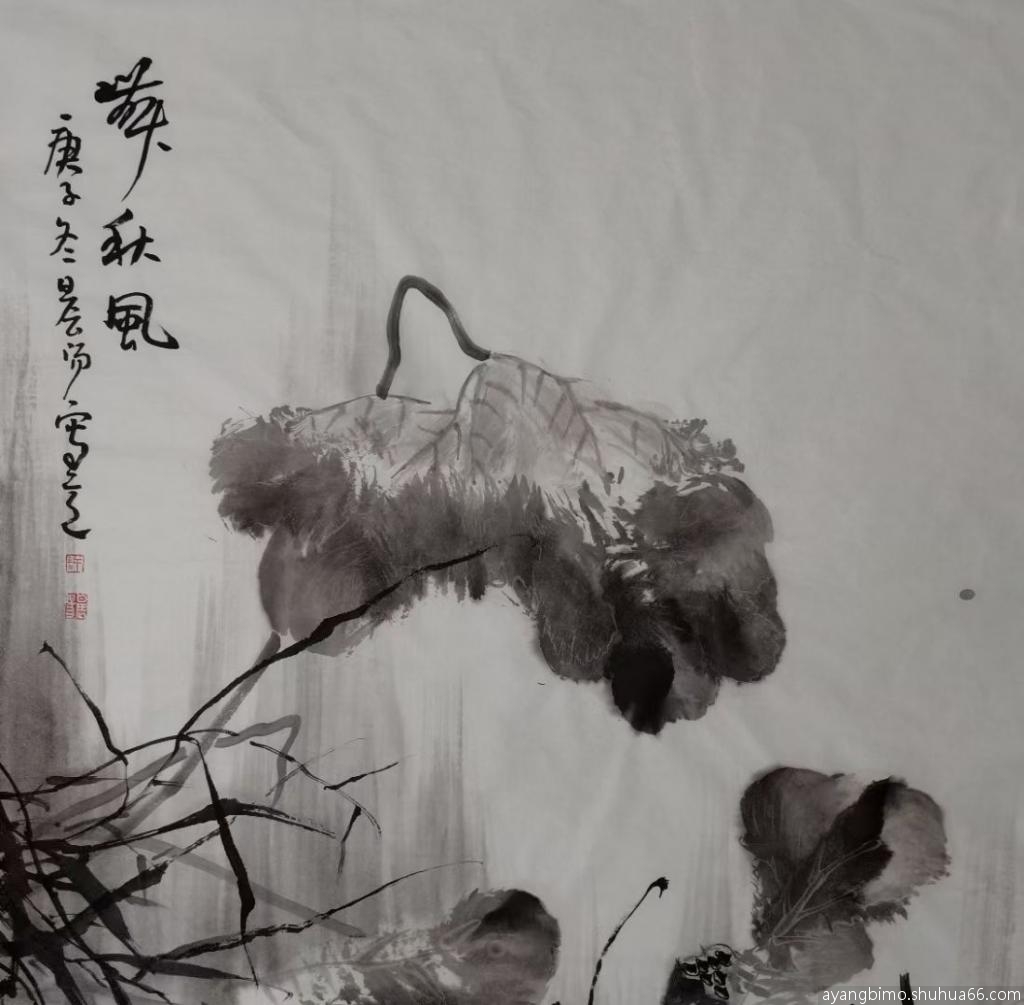 舞秋風
庚子冬晨
ayangbimo.shuhua66.com